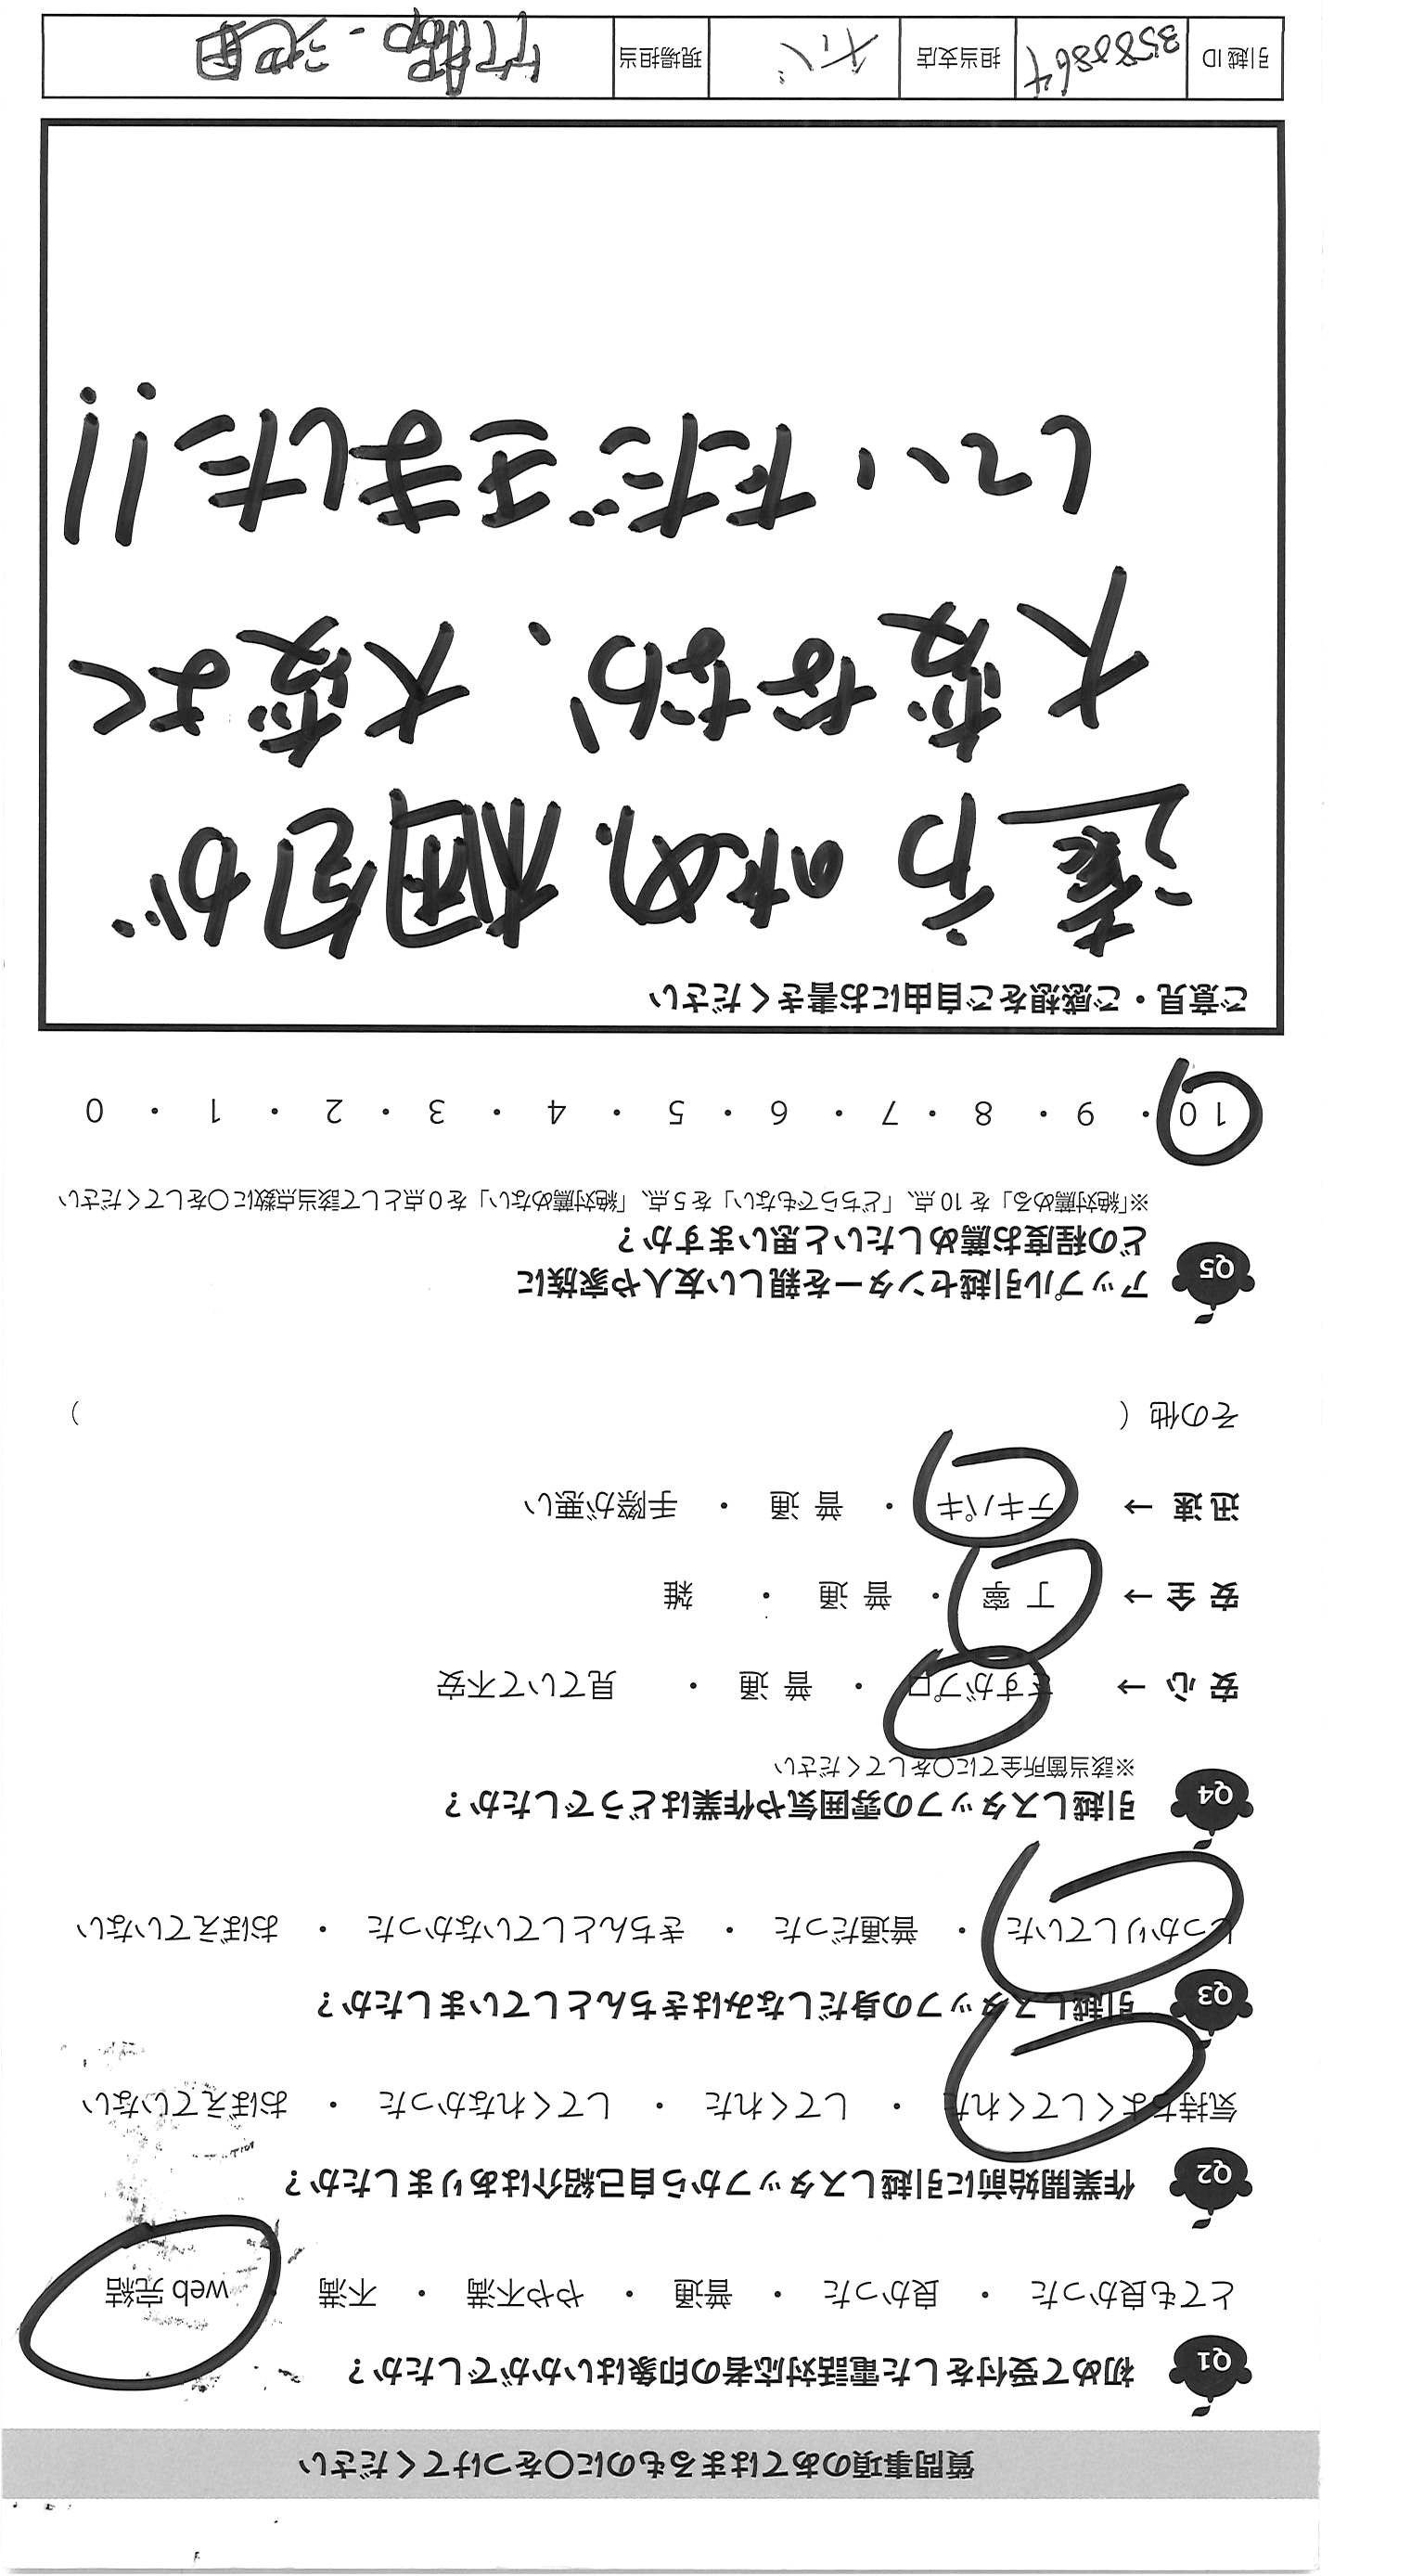 質問事項のあてはまるものに○をつけてください
Q1 初めて受付をした電話対応者の印象はいかがでしたか？
とても良かった ・ 良かった ・ 普通 ・ やや不満 ・ 不満 ・ web 完結
Q2 作業開始前に引越しスタッフから自己紹介はありましたか？
気持ちよくしてくれた ・ してくれた ・ してくれなかった ・ おぼえていない
Q3 引越しスタッフの身だしなみはきちんとしていましたか？
しっかりしていた ・ 普通だった ・ きちんとしていなかった ・ おぼえていない
Q4 引越しスタッフの雰囲気や作業はどうでしたか？
※該当箇所全てに○をしてください
安 心 → さすがプロ ・ 普 通 ・ 見ていて不安
安 全 → 丁 寧 ・ 普 通 ・ 雑
迅 速 → テキパキ ・ 普 通 ・ 手際が悪い
その他（ ）
Q5 アップル引越センターを親しい友人や家族に
どの程度お薦めしたいと思いますか？
※「絶対薦める」を 10 点、「どちらでもない」を 5 点、「絶対薦めない」を 0 点として該当点数に○をしてください
10 ・ 9 ・ 8 ・ 7 ・ 6 ・ 5 ・ 4 ・ 3 ・ 2 ・ 1 ・ 0
ご意見・ご感想をご自由にお書きください
遠方のため、梱包が
大変ななか、大変よく
していただきました!!
引越 ID 3588864 担当支店 現場担当 池田